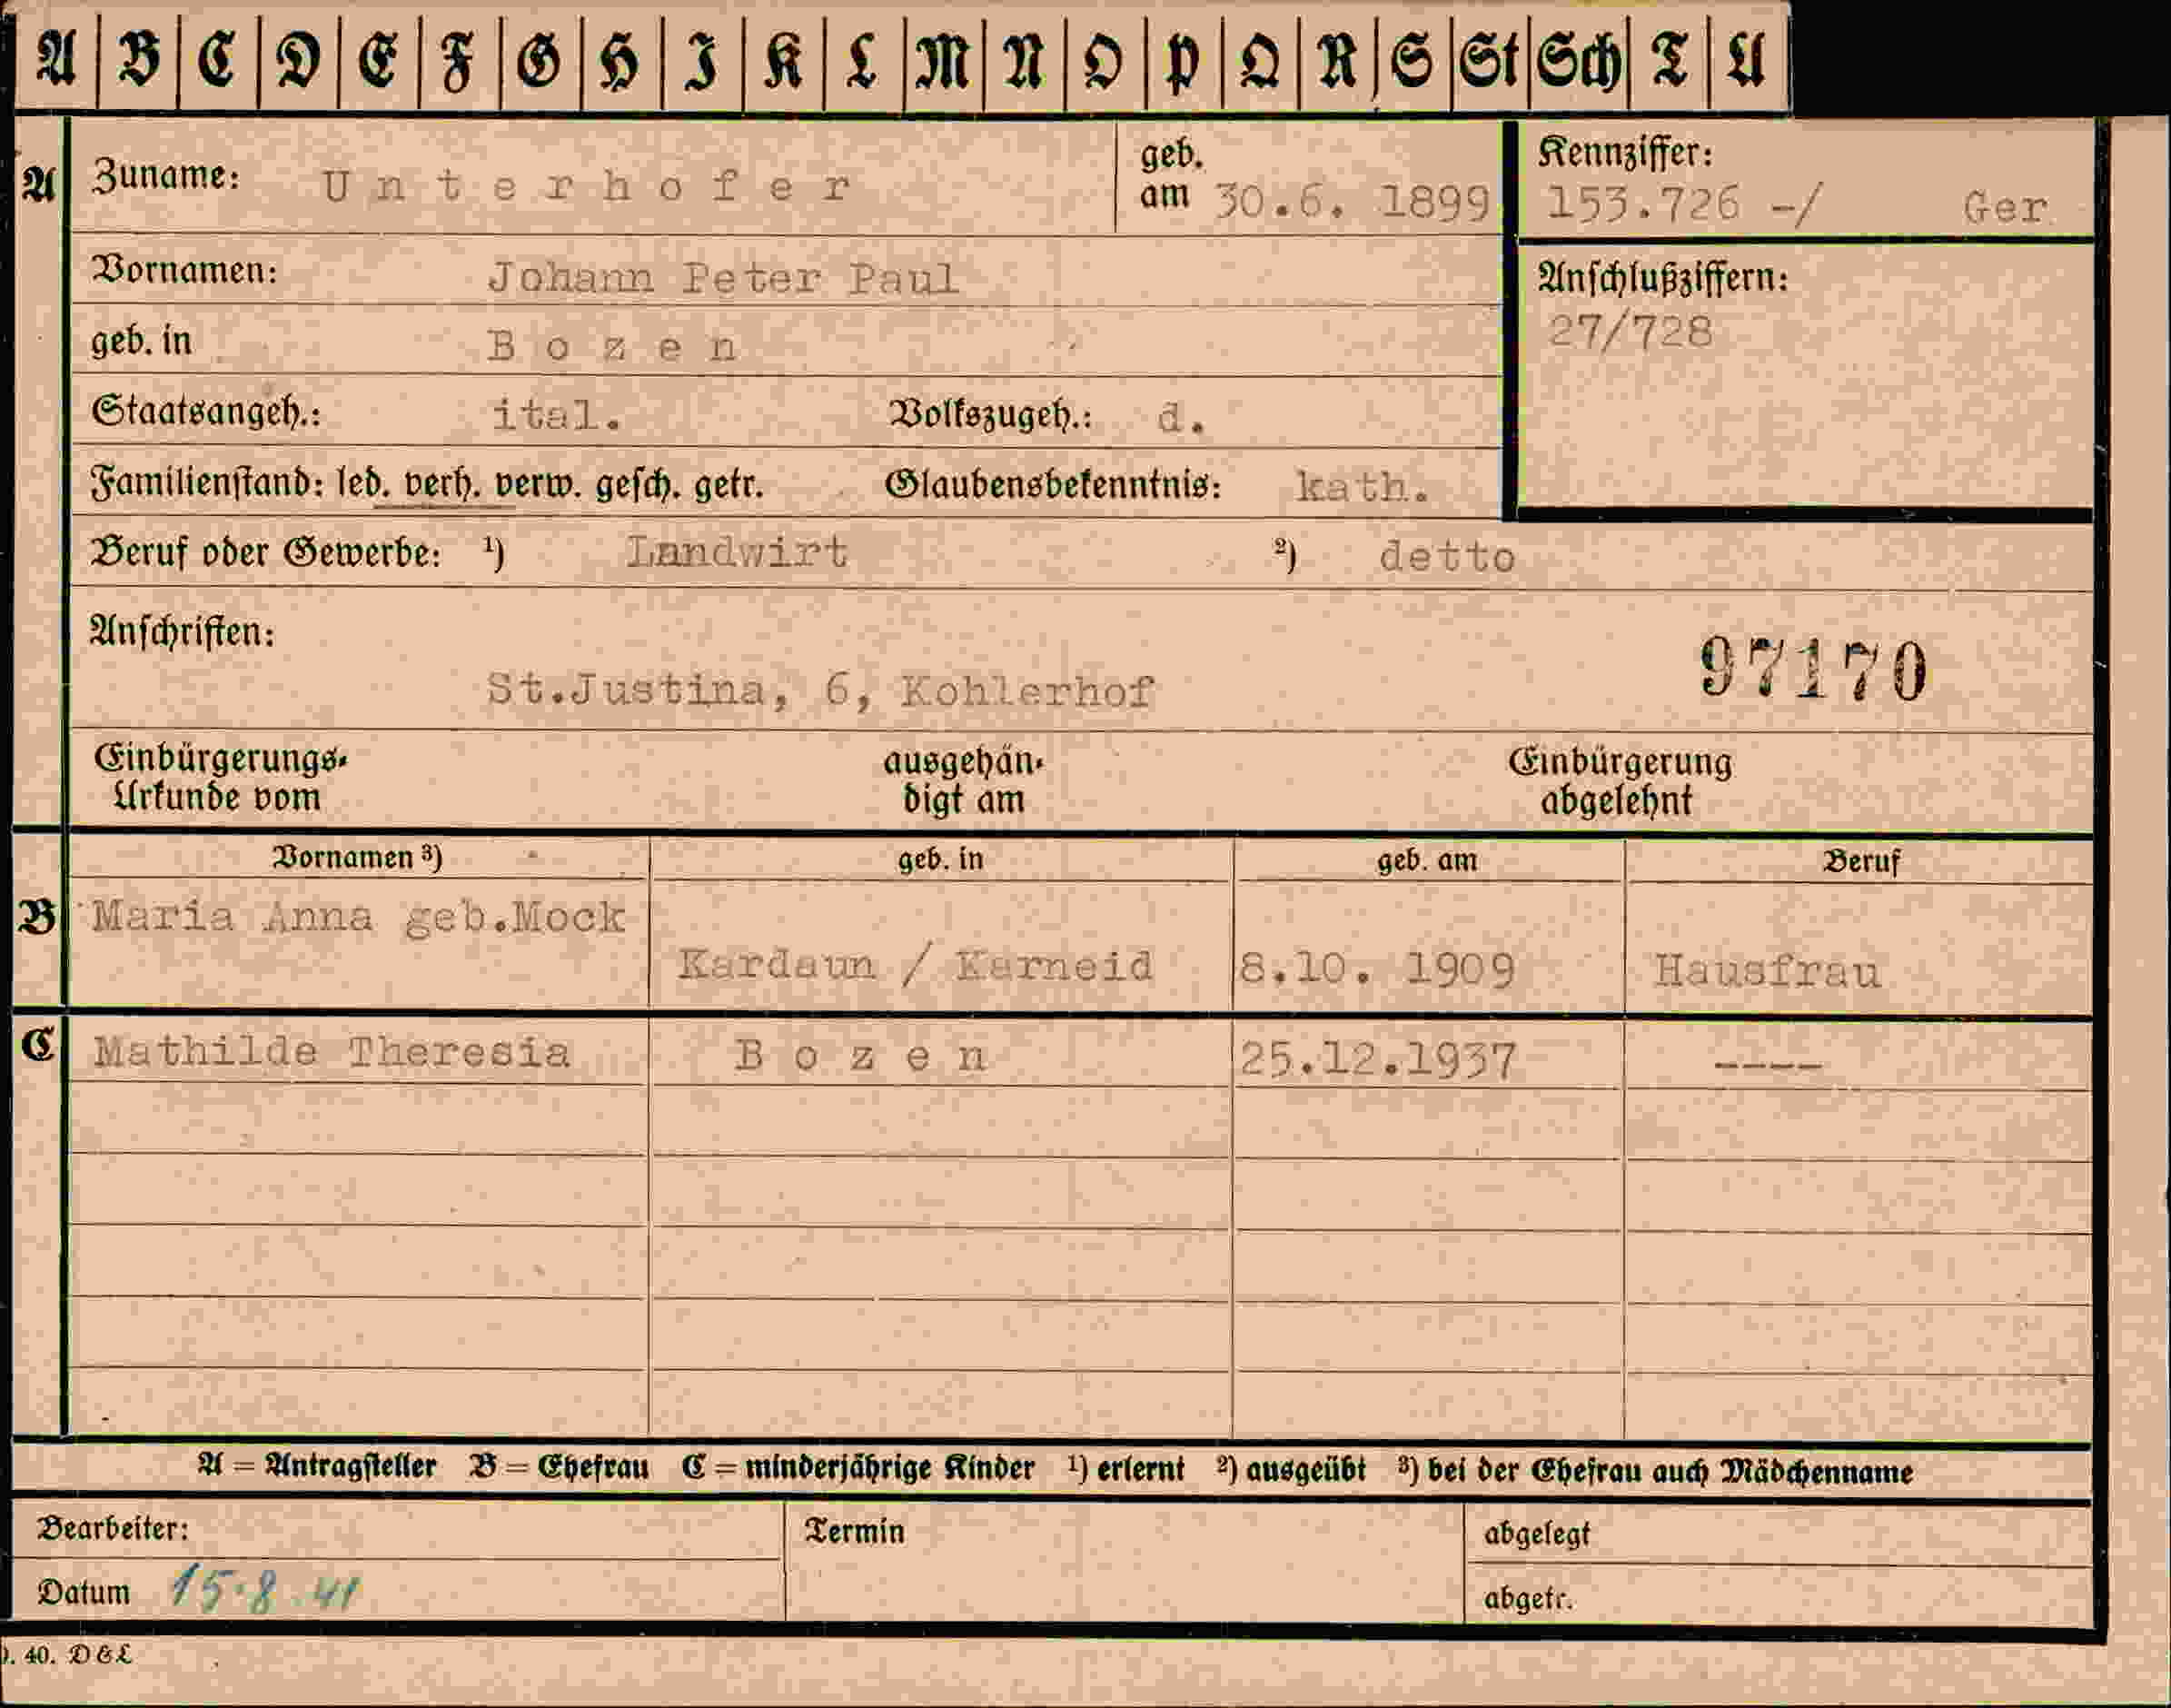 A B C D E F G H I K L M N O P Q R S St Sch T U
A Zuname: Unterhofer geb. am 30.6. 1899 Kennziffer: 153.726 -/ Ger
Vornamen: Johann Peter Paul Anschlußziffern:
27/728
geb. in Bozen
Staatsangeh.: ital. Volkszugeh.: d.
Familienstand: led. verh. verw. gesch. getr. Glaubensbekenntnis: kath.
Beruf oder Gewerbe: ¹) Landwirt ²) detto
Anschriften:
St.Justina, 6, Kohlerhof 97170
Einbürgerungs- ausgehän- Einbürgerung
Urkunde vom digt am abgelehnt
Vornamen ³) geb. in geb. am Beruf
B Maria Anna geb.Mock
Kardaun / Karneid 8.10. 1909 Hausfrau
C Mathilde Theresia Bozen 25.12.1937 ----
A = Antragsteller B = Ehefrau C = minderjährige Kinder ¹) erlernt ²) ausgeübt ³) bei der Ehefrau auch Mädchenname
Bearbeiter: Termin abgelegt
Datum 15.8.41 abgetr.
. 40. D & L